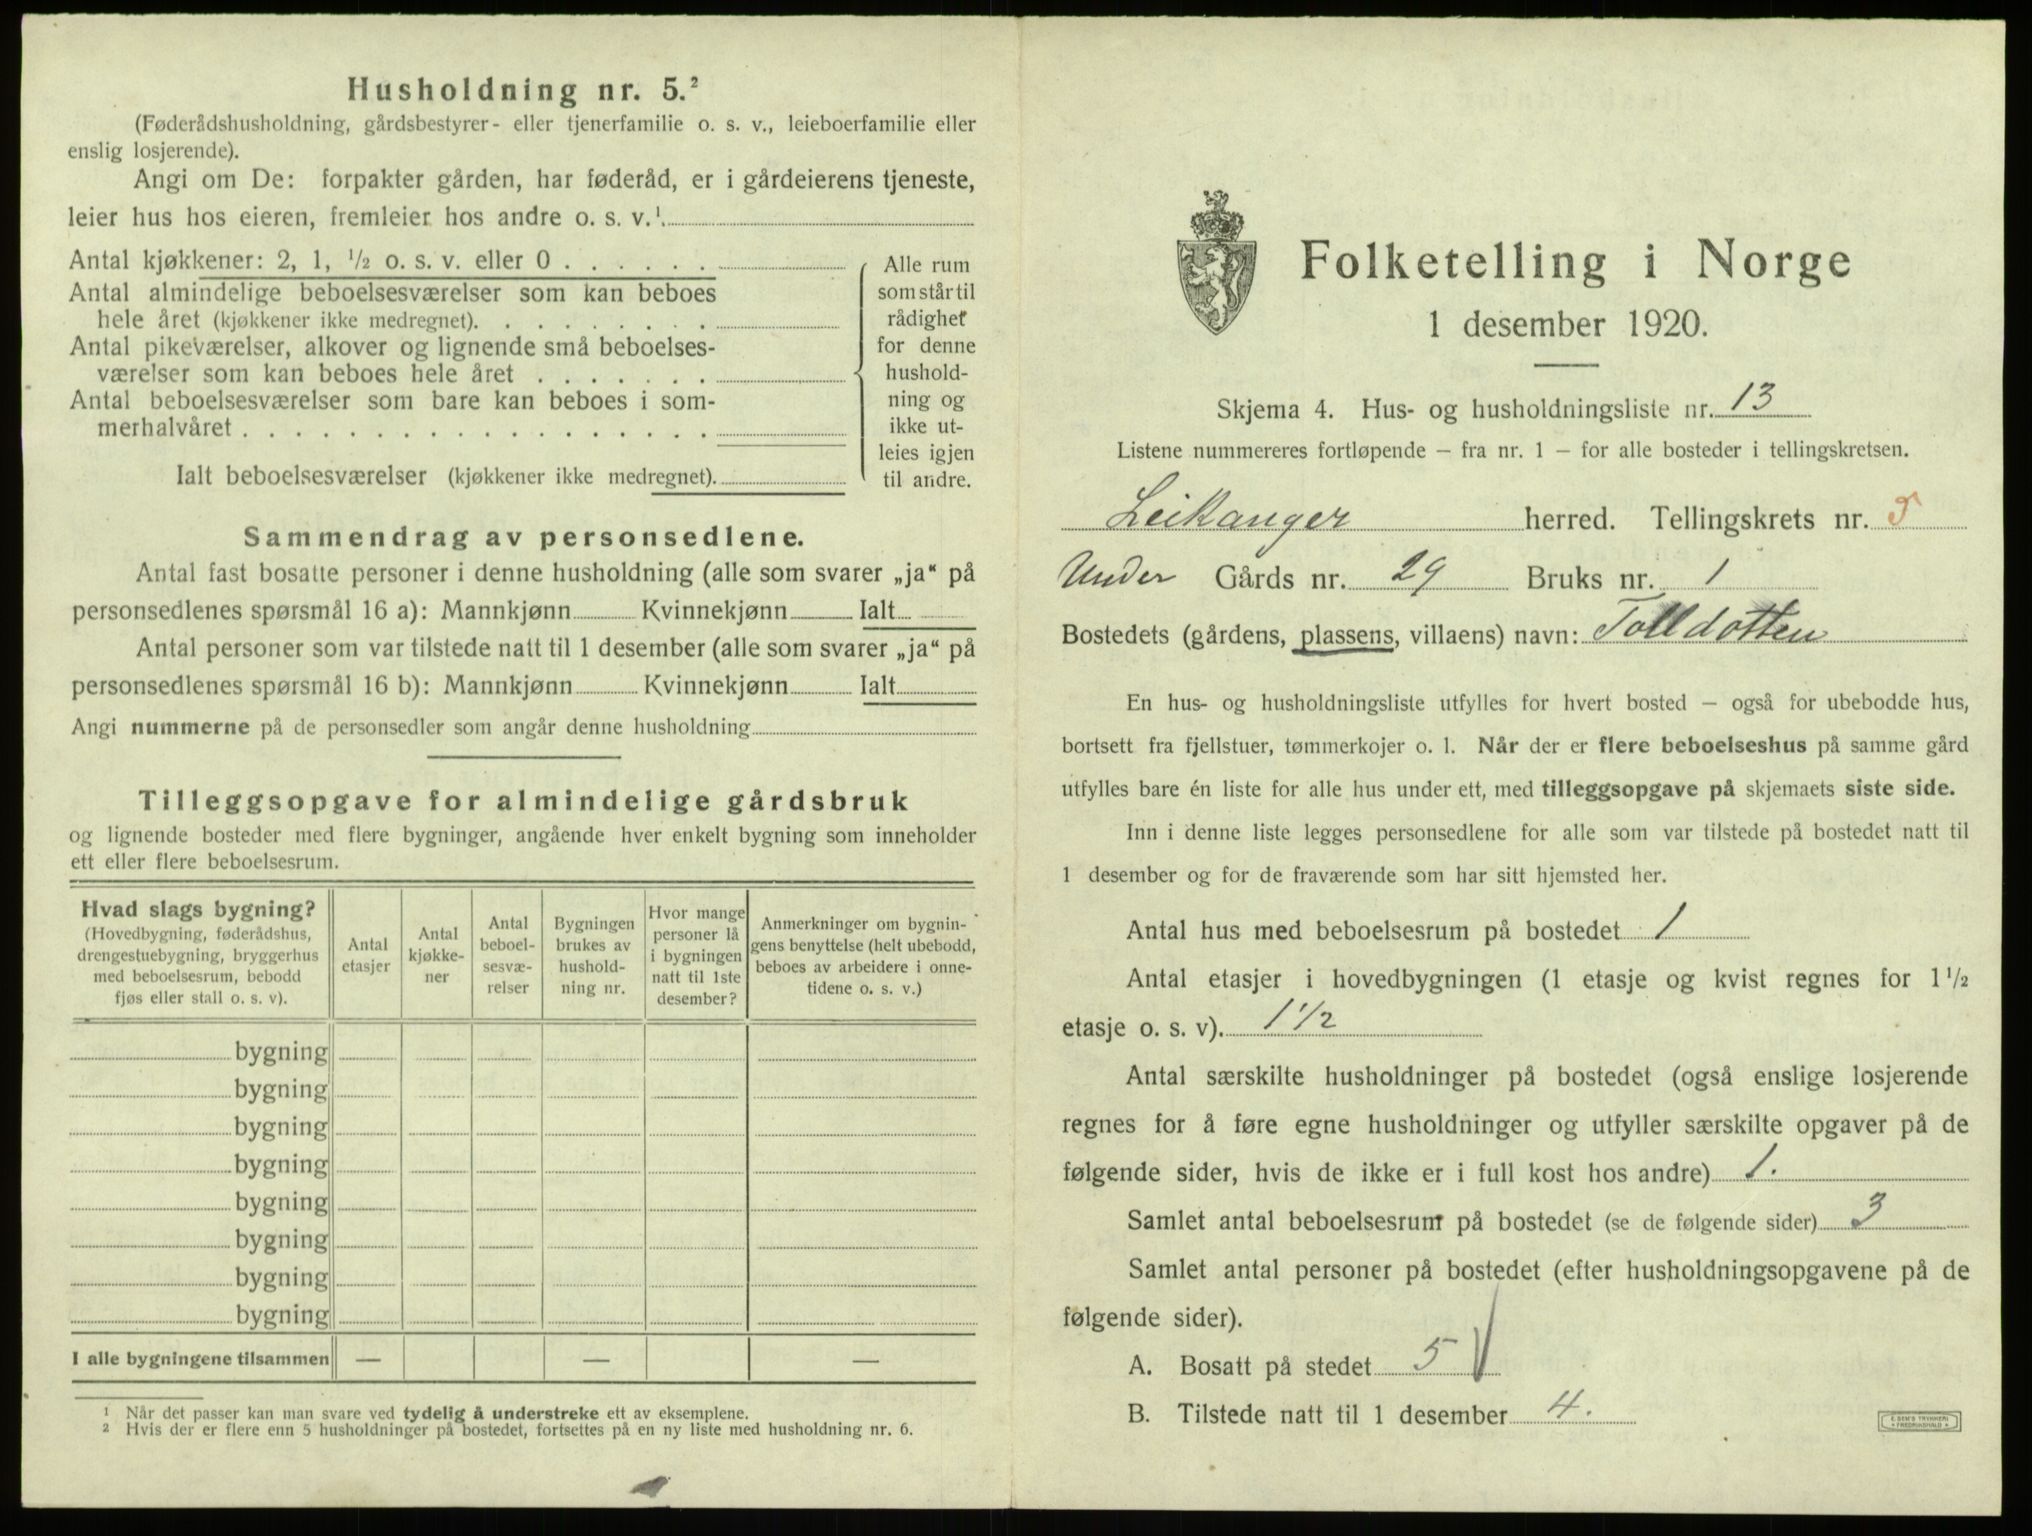 Husholdning nr. 5.²
(Føderådshusholdning, gårdsbestyrer- eller tjenerfamilie o. s. v., leieboerfamilie eller
enslig losjerende).
Angi om De: forpakter gården, har føderåd, er i gårdeierens tjeneste,
leier hus hos eieren, fremleier hos andre o. s. v.¹
Antal kjøkkener: 2, 1, ½ o. s. v. eller 0 . . . . . .
Antal almindelige beboelsesværelser som kan beboes
hele året (kjøkkener ikke medregnet). . . . . . . . .
Antal pikeværelser, alkover og lignende små beboelses-
værelser som kan beboes hele året . . . . . . .
Antal beboelsesværelser som bare kan beboes i som-
merhalvåret . . . . . . . . . . . . . . . . . .
Ialt beboelsesværelser (kjøkkener ikke medregnet).
Alle rum
som står til
rådighet
for denne
hushold-
ning og
ikke ut-
leies igjen
til andre.
Sammendrag av personsedlene.
Antal fast bosatte personer i denne husholdning (alle som svarer „ja“ på
personsedlenes spørsmål 16 a): Mannkjønn Kvinnekjønn Ialt
Antal personer som var tilstede natt til 1 desember (alle som svarer „ja“ på
personsedlenes spørsmål 16 b): Mannkjønn Kvinnekjønn Ialt
Angi nummerne på de personsedler som angår denne husholdning
Tilleggsopgave for almindelige gårdsbruk
og lignende bosteder med flere bygninger, angående hver enkelt bygning som inneholder
ett eller flere beboelsesrum.
Hvad slags bygning?
(Hovedbygning, føderådshus,
drengestuebygning, bryggerhus
med beboelsesrum, bebodd
fjøs eller stall o. s. v).
Antal
etasjer
Antal
kjøkke-
ner
Antal
beboel-
sesvæ-
relser
Bygningen
brukes av
hushold-
ning nr.
Hvor mange
personer lå
i bygningen
natt til 1ste
desember?
Anmerkninger om bygnin-
gens benyttelse (helt ubebodd,
beboes av arbeidere i onne-
tidene o. s. v.)
bygning
bygning
bygning
bygning
bygning
bygning
bygning
bygning
I alle bygningene tilsammen — — —
¹ Når det passer kan man svare ved tydelig å understreke ett av eksemplene.
² Hvis der er flere enn 5 husholdninger på bostedet, fortsettes på en ny liste med husholdning nr. 6.
Folketelling i Norge
1 desember 1920.
Skjema 4. Hus- og husholdningsliste nr. 13
Listene nummereres fortløpende — fra nr. 1 — for alle bosteder i tellingskretsen.
Leikanger herred. Tellingskrets nr. 5
Under Gårds nr. 29 Bruks nr. 1
Bostedets (gårdens, plassens, villaens) navn: Tolldotten
En hus- og husholdningsliste utfylles for hvert bosted — også for ubebodde hus,
bortsett fra fjellstuer, tømmerkojer o. l. Når der er flere beboelseshus på samme gård
utfylles bare én liste for alle hus under ett, med tilleggsopgave på skjemaets siste side.
Inn i denne liste legges personsedlene for alle som var tilstede på bostedet natt til
1 desember og for de fraværende som har sitt hjemsted her.
Antal hus med beboelsesrum på bostedet 1
Antal etasjer i hovedbygningen (1 etasje og kvist regnes for 1½
etasje o. s. v). 1 1/2
Antal særskilte husholdninger på bostedet (også enslige losjerende
regnes for å føre egne husholdninger og utfyller særskilte opgaver på de
følgende sider, hvis de ikke er i full kost hos andre) 1.
Samlet antal beboelsesrum på bostedet (se de følgende sider) 3
Samlet antal personer på bostedet (efter husholdningsopgavene på de
følgende sider).
A. Bosatt på stedet 5
B. Tilstede natt til 1 desember 4.
E. SEM'S TRYKKERI
FREDRIKSHALD